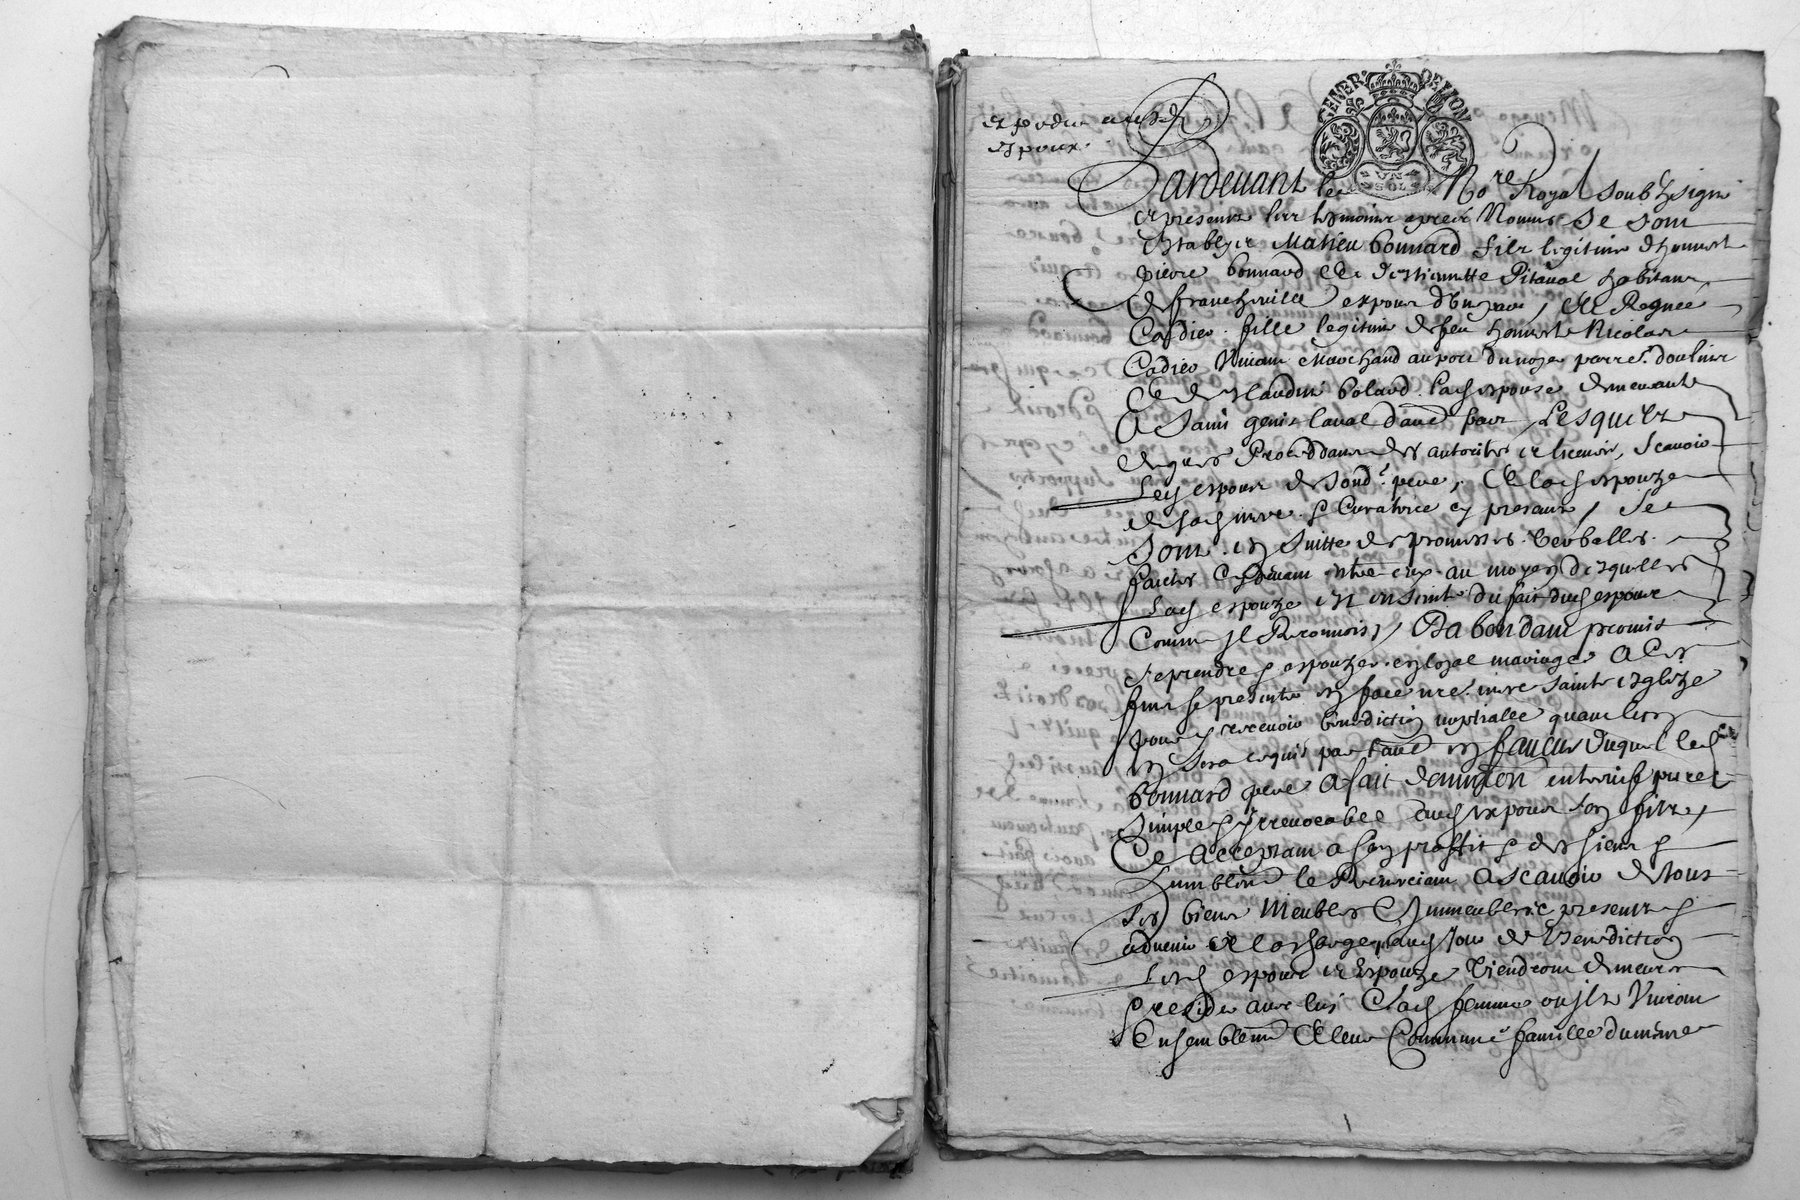 expedie ausd
espoux
GENER. DE LYON
UN SOL
Pardevant le No.re Royal soubzsigné
et presentz les tesmoins apres Nommes Se sont
Establys Matieu bonnard filz legitime d'honnest
pierre bonnard Et d'estiennette Pitaval habitans
de francheville espoux d'une part, Et
Cadier fille legitime de feu honneste Nicolas
Cadier Vivant Marchand au port
Et de Claudine bolard lad espouse demeurante
A Saint genis laval d'autre part Lesquelz
de gres Proceddans des authorites et licences, Scavoir
Led espoux de sond. pere, Et lad espouze
de sad mere & Curatrice cy presans, Se
Sont en Suitte des promesses Verballes
faictes Cydevant entre eux au moyen desquelles
Lad espouze est enceinte du fait dud espoux
Comme Il Reconnoist, Et abondam promis
se prendre & espouzer en loyal mariage A Ces
fins se presenter en face nre. mere Sainte esglize
pour y recevoir benediction nuptialle quand lun
en sera requis par l'autre en faveur duquel led
bonnard pere A fait donnation entrevifz pure
Simple & Irrevocable aud espoux son filz,
Ce Acceptant a son proffit & des siens &
humblem.t le Remerciant Ascavoir de tous
Ses biens Meubles & Immeubles presentz &
advenir Et la charge quaud Jour de Benediction
Lesd espoux et Espouze Viendront demeurer
& resider avec luy & lad femme ou Ilz Vivront
Ensemblem.t Et leur Commune famille du mesme